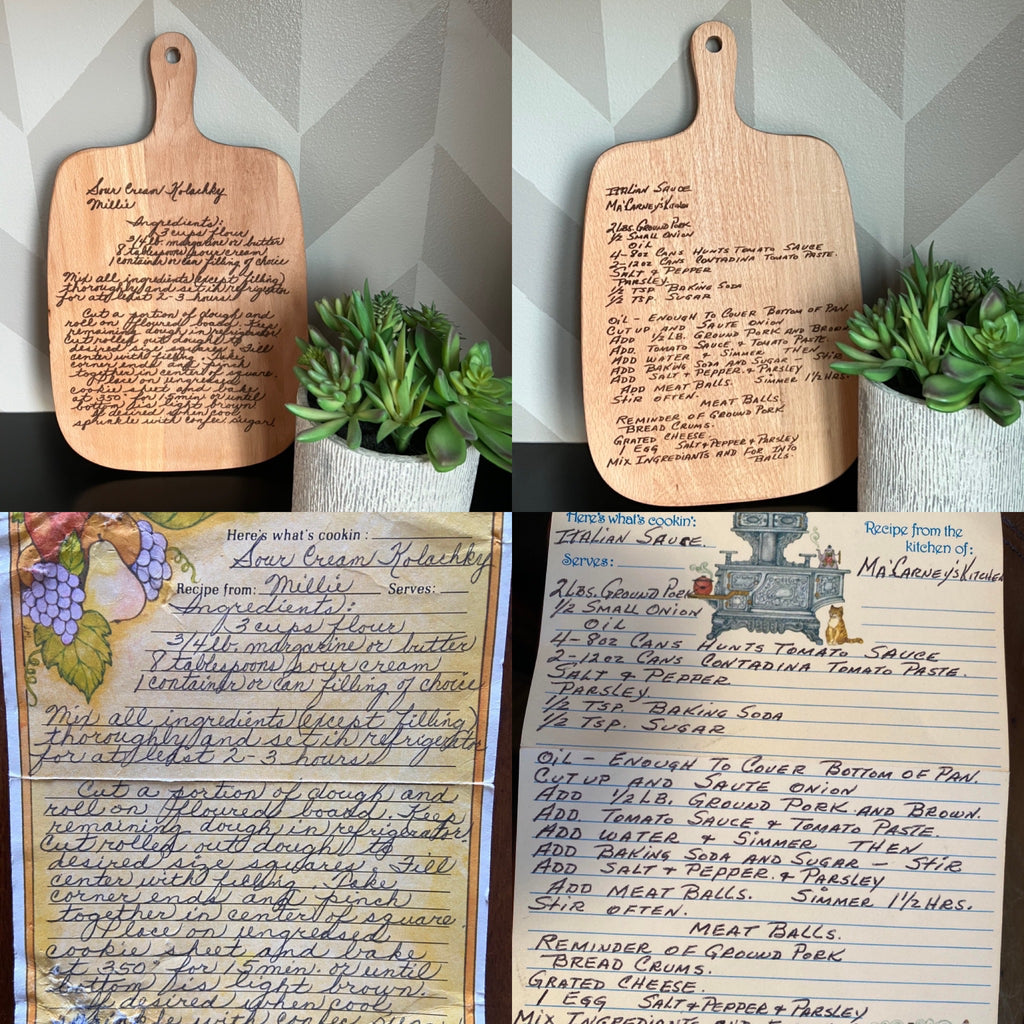 Sour Cream Kolachky
Millie
Ingredients:
3 cups flour
3/4 lb. margarine or butter
8 tablespoons sour cream
1 container or can filling of choice
Mix all ingredients (except filling)
thoroughly and set in refrigerator
for at least 2-3 hours.
Cut a portion of dough and
roll on floured board. Keep
remaining dough in refrigerator.
Cut rolled out dough to
desired size squares. Fill
center with filling. Take
corner ends and pinch
together in center of square.
Place on ungreased
cookie sheet and bake
at 350° for 15 min. or until
bottom is light brown.
If desired when cool
sprinkle with confec sugar
ITALIAN SAUCE
MA'CARNEY'S KITCHEN
2 LBS. GROUND PORK
1/2 SMALL ONION
OIL
4-8oz CANS HUNTS TOMATO SAUCE
2-12oz CANS CONTADINA TOMATO PASTE.
SALT & PEPPER
PARSLEY
1/2 TSP BAKING SODA
1/2 TSP. SUGAR
OIL - ENOUGH TO COVER BOTTOM OF PAN.
CUT UP AND SAUTE ONION
ADD 1/2 LB. GROUND PORK AND BROWN
ADD TOMATO SAUCE & TOMATO PASTE.
ADD WATER & SIMMER THEN
ADD BAKING SODA AND SUGAR - STIR
ADD SALT & PEPPER. & PARSLEY
ADD MEAT BALLS. SIMMER 1 1/2 HRS.
STIR OFTEN.
MEAT BALLS.
REMINDER OF GROUND PORK
BREAD CRUMS.
GRATED CHEESE.
1 EGG SALT & PEPPER & PARSLEY
MIX INGREDIANTS AND FOR INTO
BALLS.
Here's what's cookin:
Sour Cream Kolachky
Recipe from: Millie Serves:
Ingredients:
3 cups flour
3/4 lb. margarine or butter
8 tablespoons sour cream
1 container or can filling of choice
Mix all ingredients (except filling)
thoroughly and set in refrigerator
for at least 2-3 hours.
Cut a portion of dough and
roll on floured board. Keep
remaining dough in refrigerator.
Cut rolled out dough to
desired size squares. Fill
center with filling. Take
corner ends and pinch
together in center of square.
Place on ungreased
cookie sheet and bake
at 350° for 15 min. or until
bottom is light brown.
If desired when cool
sprinkle with confec sugar
Here's what's cookin':
ITALIAN SAUCE.
Serves:
Recipe from the
kitchen of:
MA'CARNEY'S KITCHEN
2 LBS. GROUND PORK
1/2 SMALL ONION
OIL
4-8oz CANS HUNTS TOMATO SAUCE
2-12oz CANS CONTADINA TOMATO PASTE.
SALT & PEPPER
PARSLEY
1/2 TSP. BAKING SODA
1/2 TSP. SUGAR
OIL - ENOUGH TO COVER BOTTOM OF PAN.
CUT UP AND SAUTE ONION
ADD 1/2 LB. GROUND PORK AND BROWN.
ADD TOMATO SAUCE & TOMATO PASTE.
ADD WATER & SIMMER THEN
ADD BAKING SODA AND SUGAR - STIR
ADD SALT & PEPPER. & PARSLEY
ADD MEAT BALLS. SIMMER 1 1/2 HRS.
STIR OFTEN.
MEAT BALLS.
REMINDER OF GROUND PORK
BREAD CRUMS.
GRATED CHEESE.
1 EGG SALT & PEPPER & PARSLEY
MIX INGREDIANTS AND